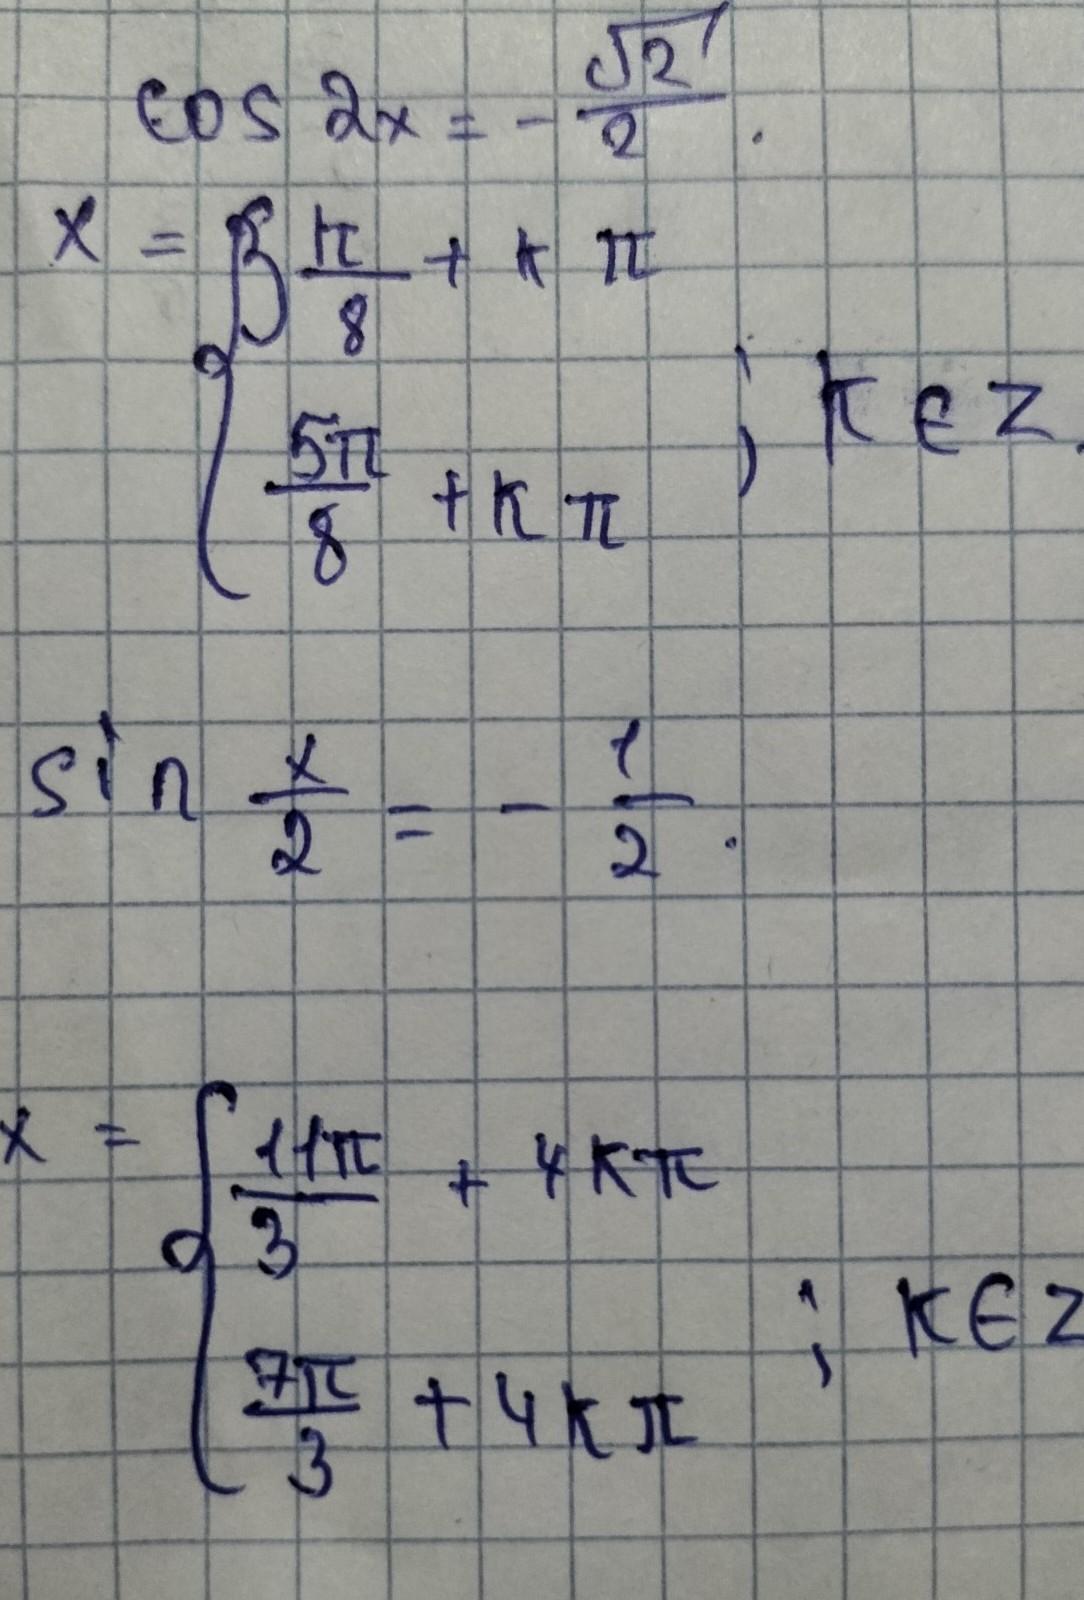 cos 2x = - √2/2 .
x = { 3π/8 + k π
5π/8 + k π ; k ∈ Z.
sin x/2 = - 1/2 .
x = { 11π/3 + 4kπ
7π/3 + 4kπ ; k ∈ Z